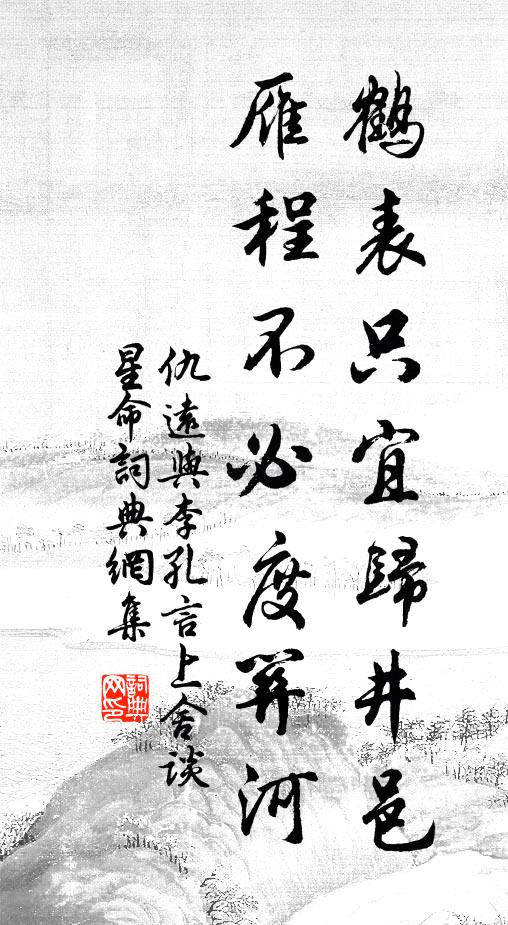 鶴表只宜歸井邑
雁程不必度關河
仇遠與李孔言上舍談
星命詞典網集
詞典網印